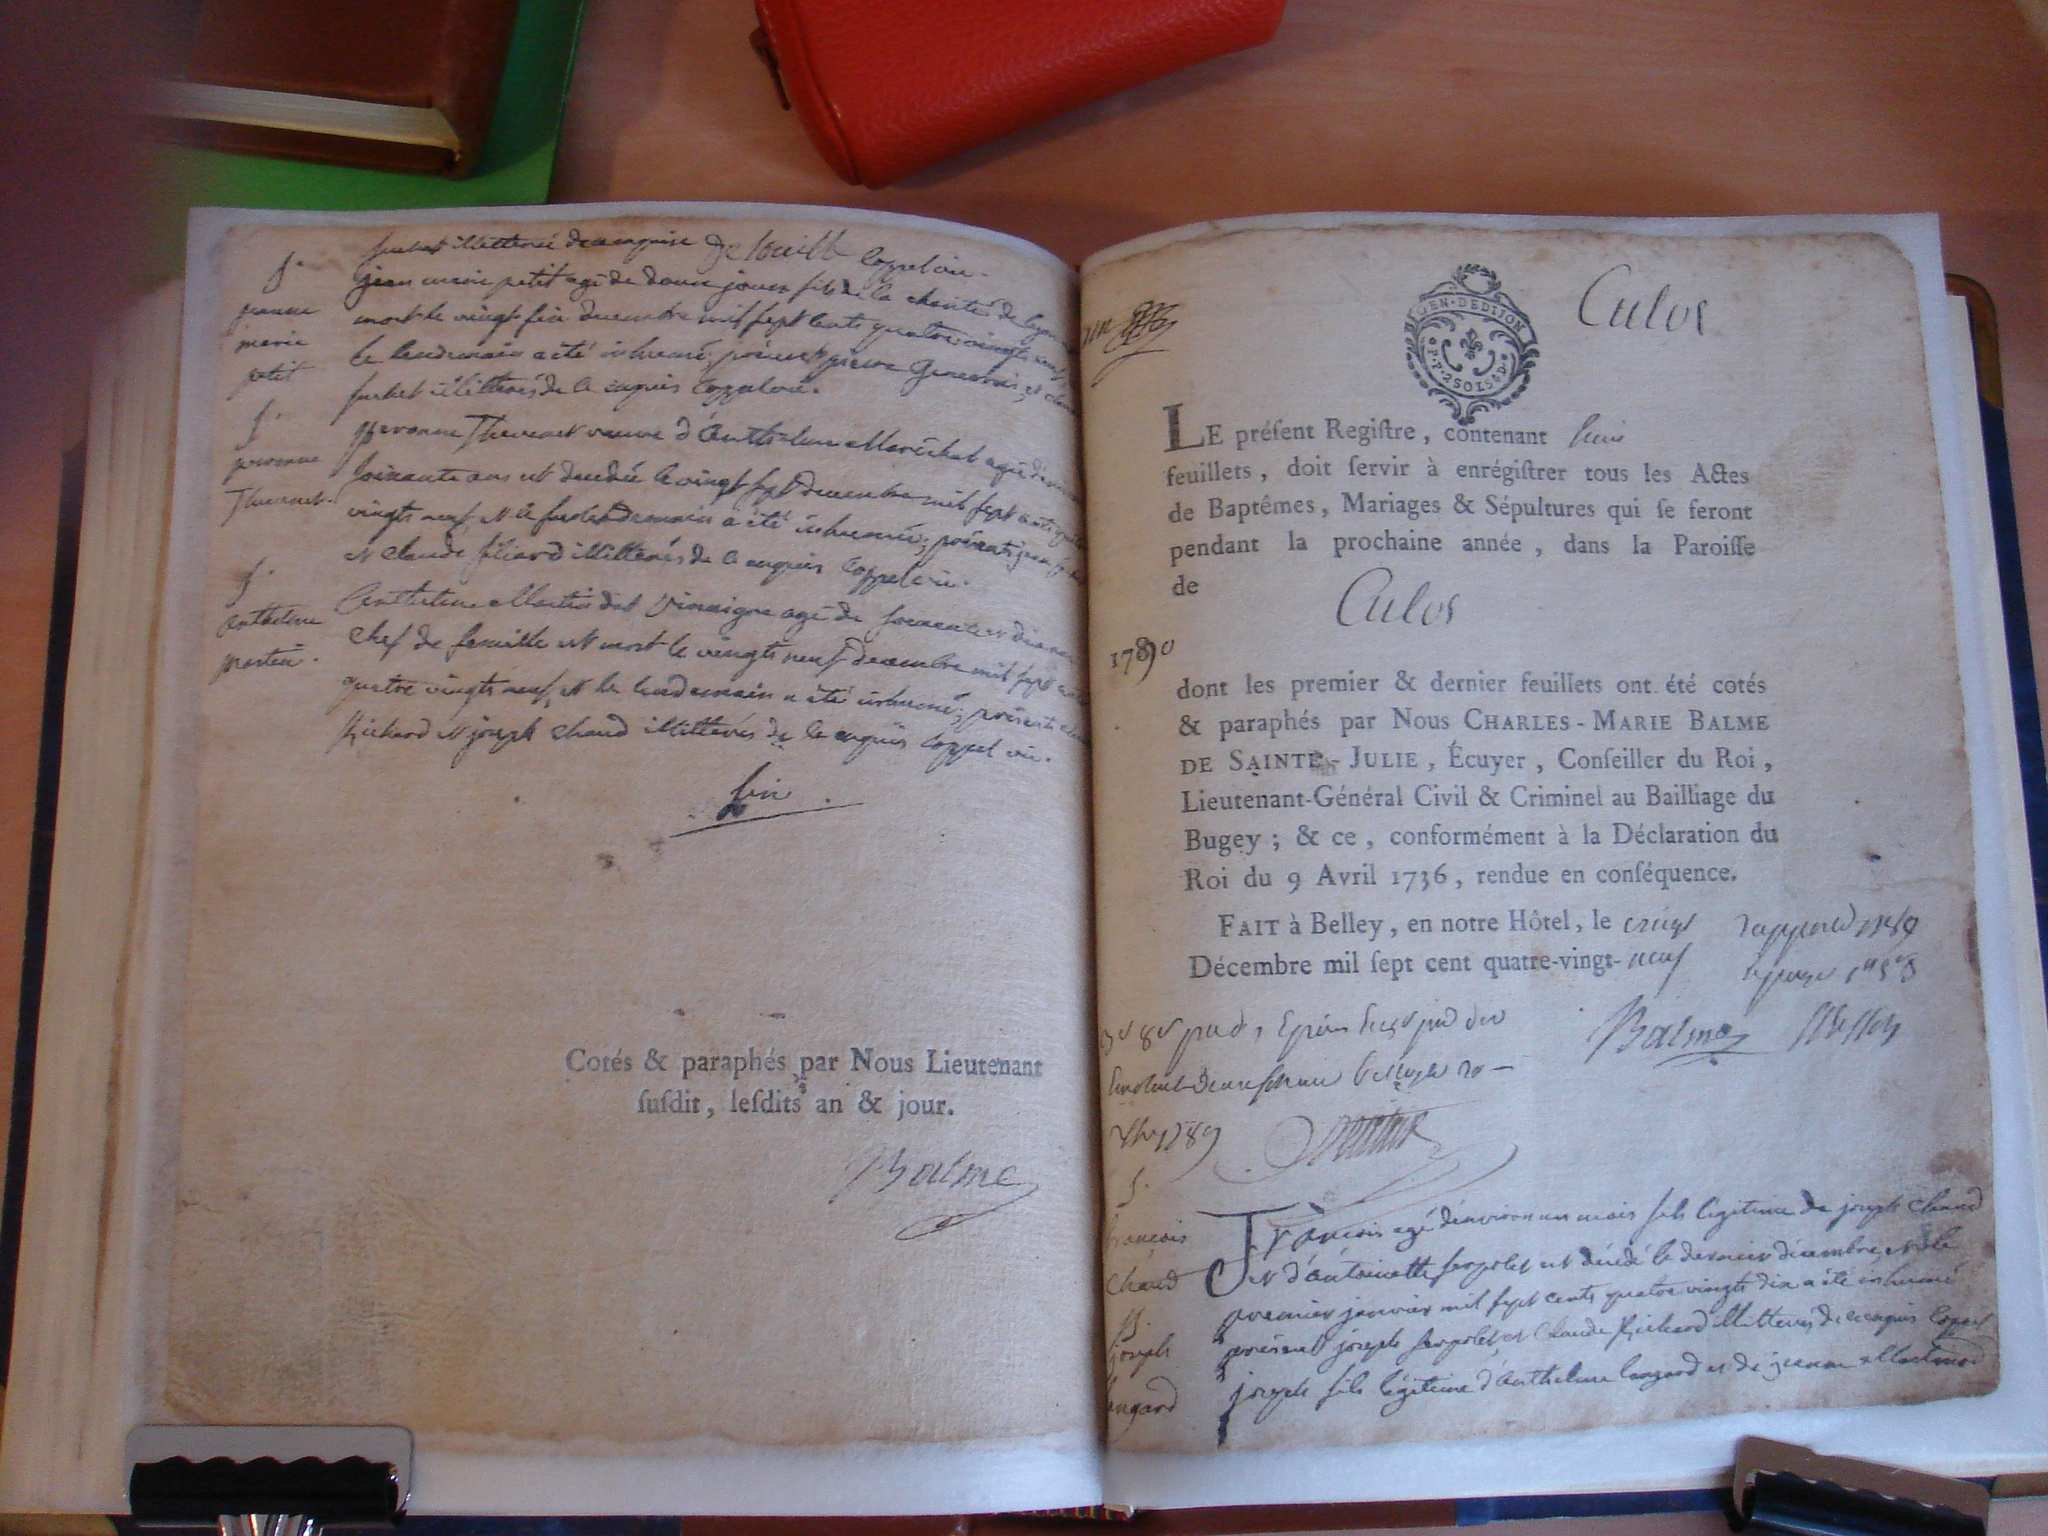 S.
jeanne
marie
petit
furbet illitterés de ce enquis Coppel vic.
jean marie petit agé de douze jours fils de la charité de lyon
mort le vingt six decembre mil sept cents quatre vingts neuf
le lendemain a été inhumé; présents pierre Genevois, et claude
furbet illitterés de ce enquis Coppel vic.
S.
peronne
Thevenet.
peronne Thevenet veuve d'Anthelme Maréchal agée d'environ
soixante ans est decedée le vingt sept decembre mil sept cents quatre
vingts neuf, et le surlendemain a été inhumée; présents
et claude filiard illitterés de ce enquis Coppel vic.
S.
anthelme
martin.
Anthelme Martin dit vinaigre agé de soixante et dix ans
chef de famille est mort le vingt neuf decembre mil sept cents
quatre vingts neuf, et le lendemain a été inhumé; présents claude
Richard et joseph chaud illitterés de ce enquis Coppel vic.
fin.
Cotés & paraphés par Nous Lieutenant
susdit, lesdits an & jour.
Balme
Culos
GEN. DE DIJON
P.P. 2 SOLS D.
LE présent Registre, contenant huit
feuillets, doit servir à enrégistrer tous les Actes
de Baptêmes, Mariages & Sépultures qui se feront
pendant la prochaine année, dans la Paroisse
de Culos
1790
dont les premier & dernier feuillets ont été cotés
& paraphés par Nous CHARLES-MARIE BALME
DE SAINTE-JULIE, Écuyer, Conseiller du Roi,
Lieutenant-Général Civil & Criminel au Bailliage du
Bugey; & ce, conformément à la Déclaration du
Roi du 9 Avril 1736, rendue en conséquence.
FAIT à Belley, en notre Hôtel, le vingt
Décembre mil sept cent quatre-vingt-neuf
Balme
S.
françois
chaud
François agé d'environ un mois fils legitime de joseph chaud
et d'Antoinette serpolet est décédé le dernier décembre, et le
premier janvier mil sept cents quatre vingts dix a été inhumé
présents joseph serpolet, et Claude Richard illitterés de ce enquis Coppel
B.
joseph
langard
joseph fils légitime d'Anthelme langard et de jeanne